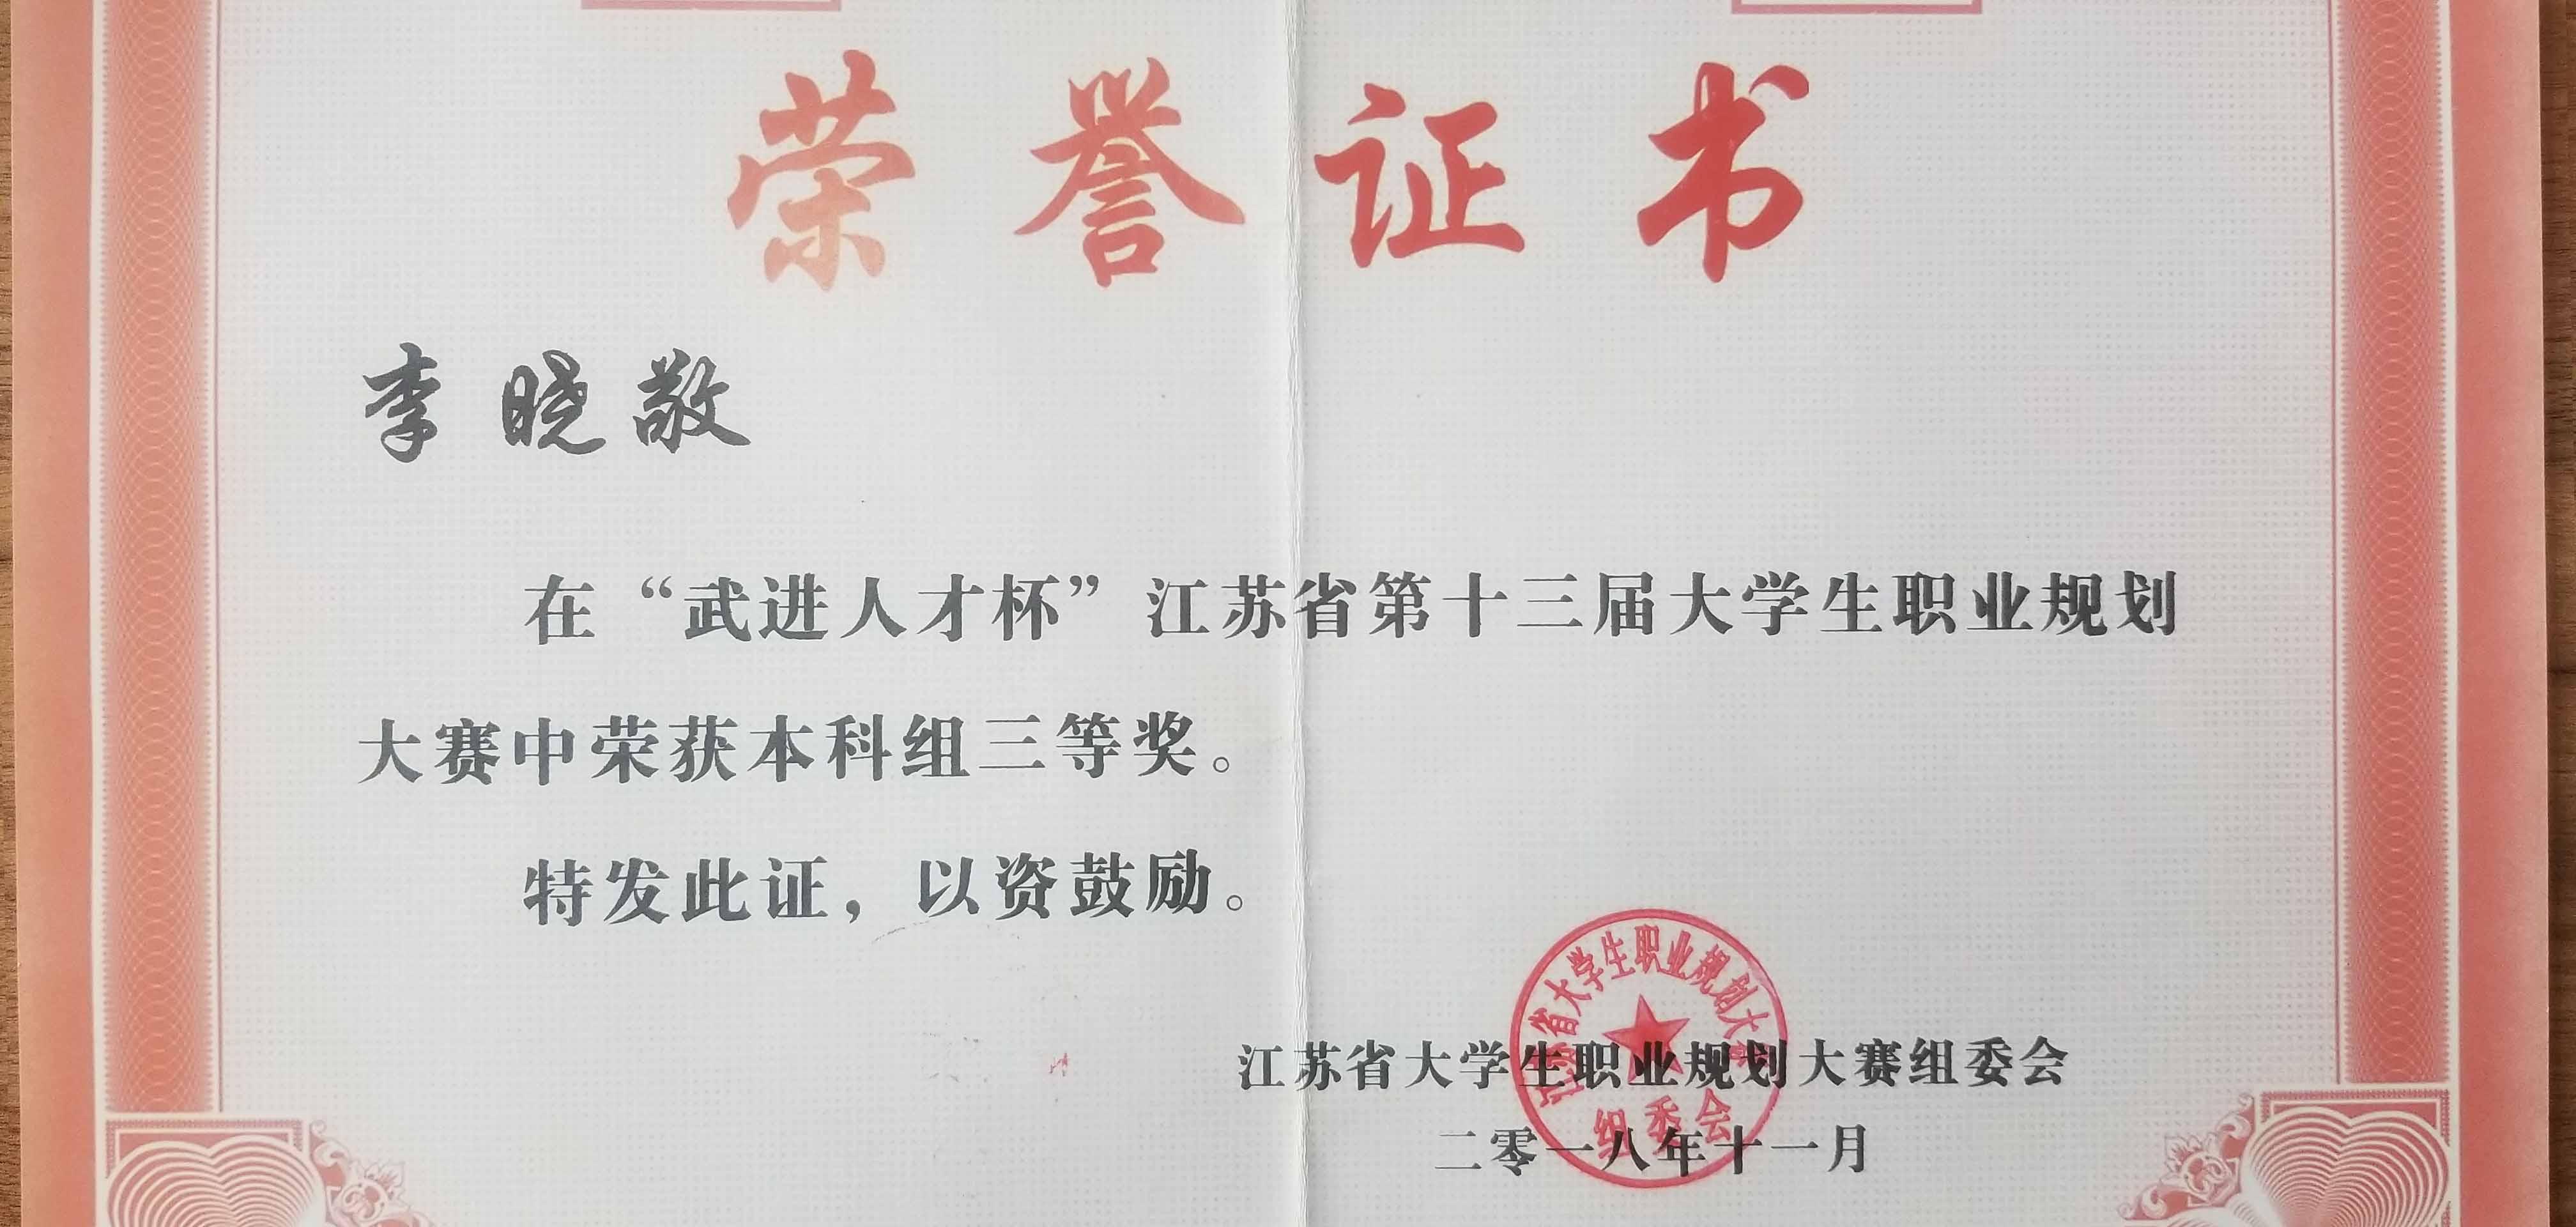 荣誉证书
李晓敬
在“武进人才杯”江苏省第十三届大学生职业规划
大赛中荣获本科组三等奖。
特发此证，以资鼓励。
江苏省大学生职业规划大赛组委会
二零一八年十一月
江苏省大学生职业规划大赛
组委会